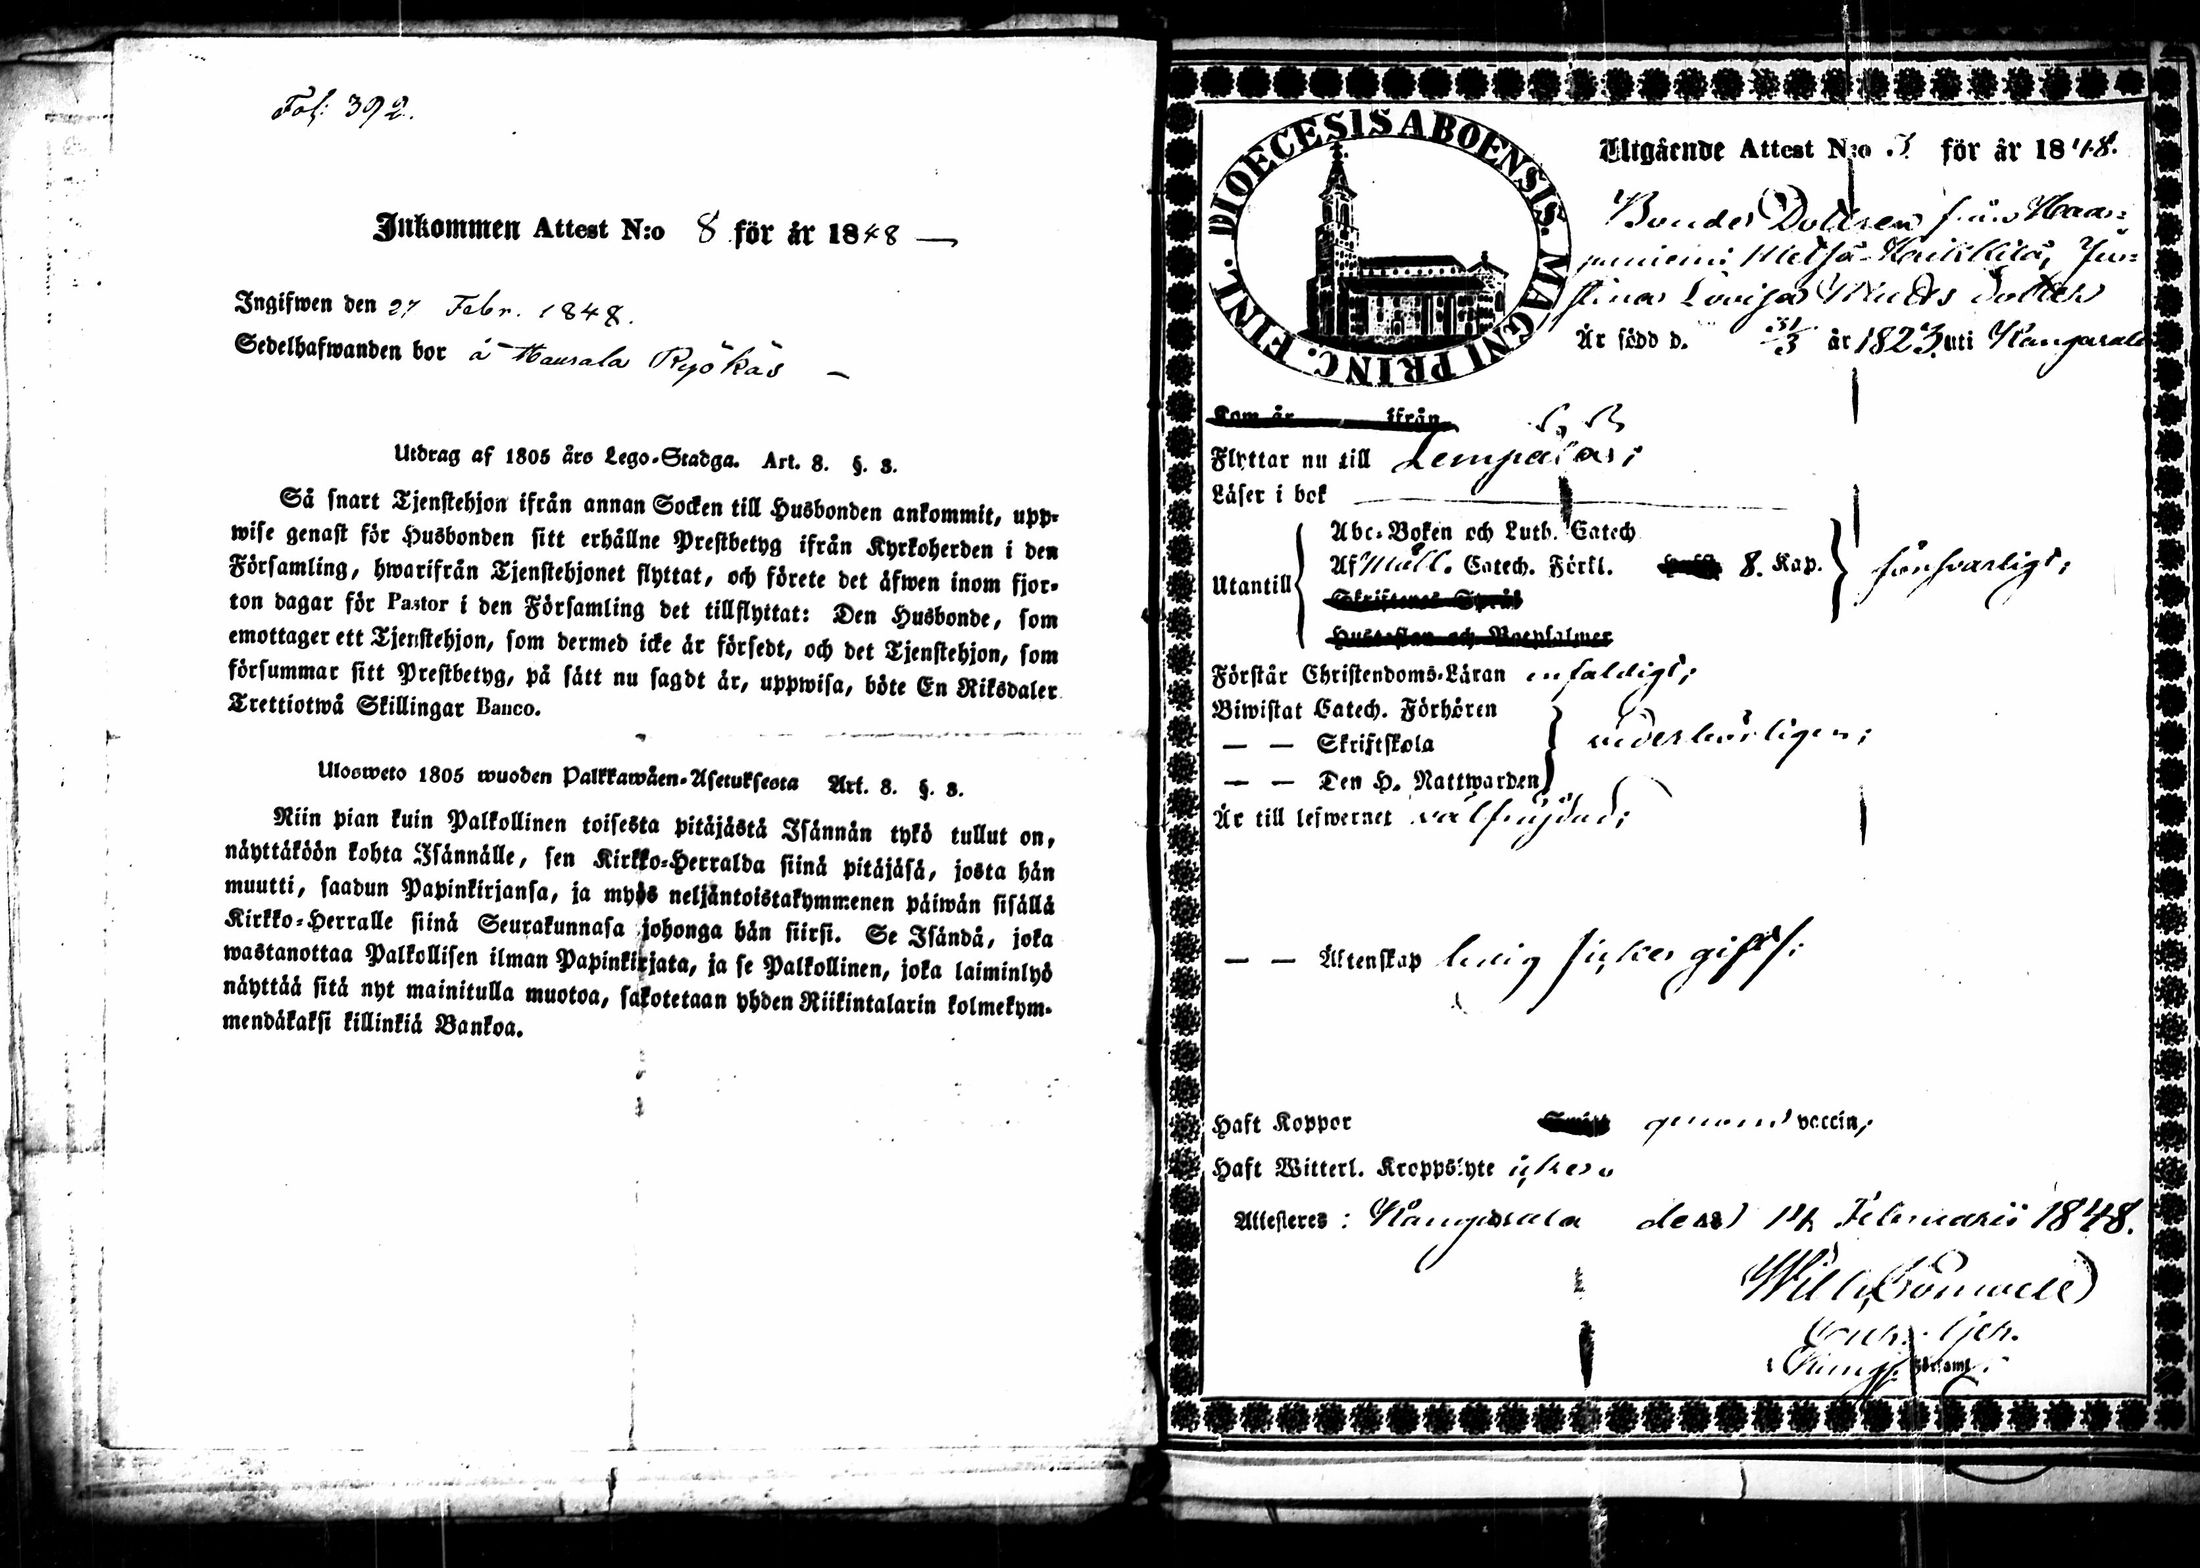 Fol. 392.
Inkommen Attest N:o 8 för år 1848 —
Ingifwen den 27 Febr. 1848.
Sedelhafwanden bor å Haurala Ryökäs —
Utdrag af 1805 års Lego-Stadga. Art. 8. §. 3.
Så snart Tjenstehjon ifrån annan Socken till Husbonden ankommit, upp-
wise genast för Husbonden sitt erhållne Prestbetyg ifrån Kyrkoherden i den
Församling, hwarifrån Tjenstehjonet flyttat, och förete det äfwen inom fjor-
ton dagar för Pastor i den Församling det tillflyttat: Den Husbonde, som
emottager ett Tjenstehjon, som dermed icke är försedt, och det Tjenstehjon, som
försummar sitt Prestbetyg, på sätt nu sagdt är, uppwisa, böte En Riksdaler
Trettiotwå Skillingar Banco.
Ulosweto 1805 wuoden Palkkawäen-Asetuksesta Art. 8. §. 3.
Niin pian kuin Palkollinen toisesta pitäjästä Isännän tykö tullut on,
näyttäköön kohta Isännälle, sen Kirkko-Herralda siinä pitäjäsä, josta hän
muutti, saadun Papinkirjansa, ja myös neljäntoistakymmenen päiwän sisällä
Kirkko-Herralle siinä Seurakunnasa johonga hän siirsi. Se Isändä, joka
wastanottaa Palkollisen ilman Papinkirjata, ja se Palkollinen, joka laiminlyö
näyttää sitä nyt mainitulla muotoa, sakotetaan yhden Riikintalarin kolmekym-
mendäkaksi killinkiä Bankoa.
DIOECESIS ABOENSIS. MAGNI PRINC. FINL.
Utgående Attest N:o 3. för år 1848.
Bonde Dottren från Haa-
paniemi Metsä-Heikkilä, Ju-
stina Lovisa Matts dotter
Är född d. 31/3 år 1823. uti Kangasala
Kom år ifrån
Flyttar nu till Lempäälä;
Läser i bok
Abc-Boken och Luth. Catech
Utantill Af Möll. Catech. Förkl. 8. Kap. försvarligt;
Skriftenes Språk
Hustaflan och Botpsalmer
Förstår Christendoms-Läran enfaldigt;
Biwistat Catech. Förhören
— — Skriftskola vederbörligen;
— — Den H. Nattwarden
Är till lefwernet välfrejdad;
— — Äktenskap ledig
Haft Koppor genom vaccin;
Haft Witterl. Kroppslyte icke.
Attesteres: Kangasala den 14 Februarii 1848.